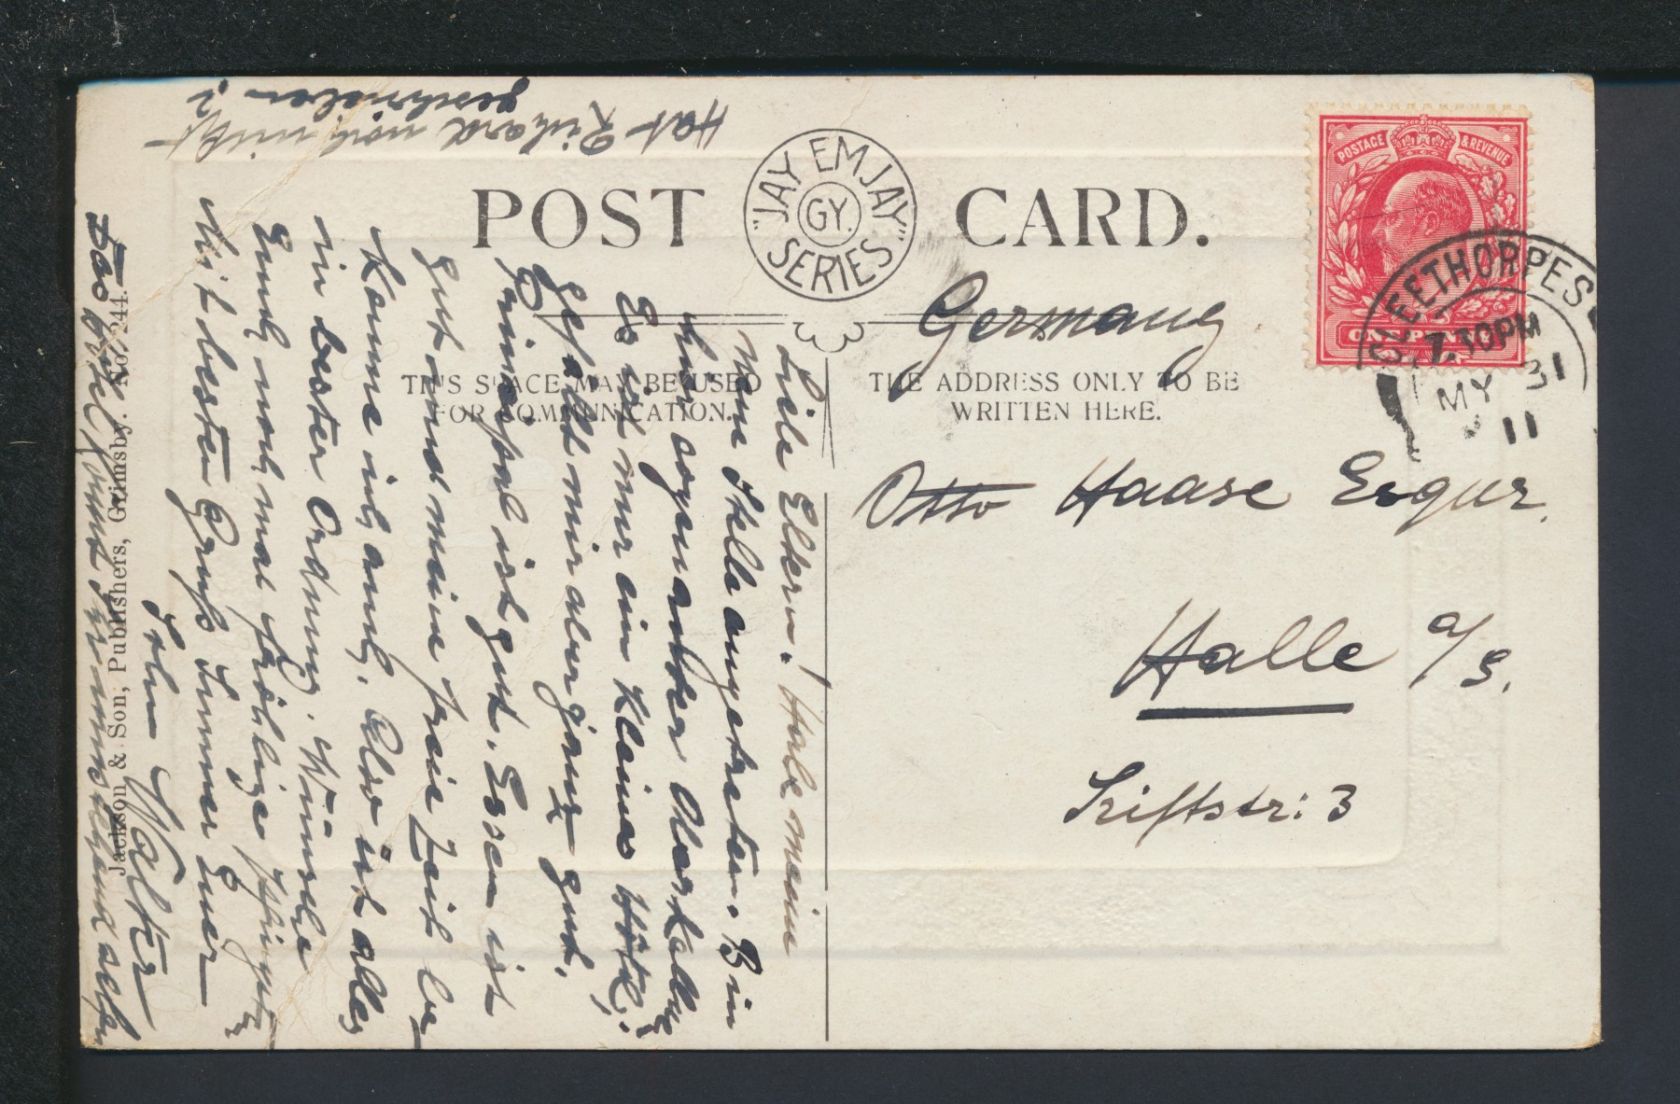 POST CARD.
"JAY EM JAY" SERIES
GY.
THIS SPACE MAY BE USED
FOR COMMUNICATION.
THE ADDRESS ONLY TO BE
WRITTEN HERE.
POSTAGE & REVENUE
ONE PENNY
CLEETHORPES
7.30PM
MY 31
11
Germany
Otto Haase Esqur.
Halle a/S.
Stiftstr: 3
Liebe Eltern! Habe meine
neue Stelle angetreten. Bin
hier sogenannter Oberkellner
Es ist nur ein kleines Hôtel,
gefällt mir aber ganz gut.
Prinzipal ist gut. Essen ist
gut und meine freie Zeit be-
komme ich auch. Also ist alles
in bester Ordnung. Wünsche
Euch noch mal fröhliges Pfingsten
Mit besten Gruß Immer Euer
Sohn Walter
Das Hôtel
Hat Richard noch nicht
geschrieben?
Jackson & Son, Publishers, Grimsby. No. 244.